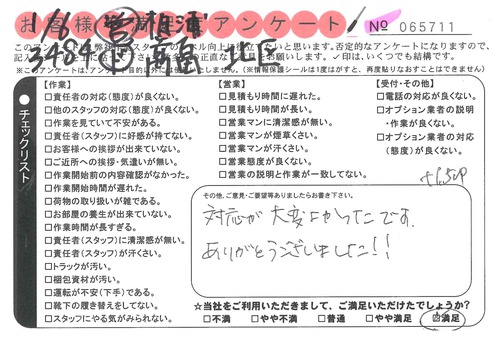 お客様アンケート
№ 065711
1/6
3484
北店
このアンケートは弊社
記入
✓印は、いくつでも結構です。
※このアンケートは、アンケート目的以外には他には使いません。(※情報保護シールは1度はがすと、再度貼りなおすことはできません)
チェックリスト
【作業】
□責任者の対応(態度)が良くない。
□他のスタッフの対応(態度)が良くない。
□作業を見ていて不安がある。
□責任者(スタッフ)に好感が持てない。
□お客様への挨拶が出来ていない。
□ご近所への挨拶・気遣いが無い。
□作業開始前の内容確認がなかった。
□作業開始時間が遅れた。
□荷物の取り扱いが雑である。
□お部屋の養生が出来ていない。
□作業時間が長すぎる。
□責任者(スタッフ)に清潔感が無い。
□責任者(スタッフ)が汗くさい。
□トラックが汚い。
□梱包資材が汚い。
□運転が不安(下手)である。
□靴下の履き替えをしてない。
□スタッフにやる気がみられない。
【営業】
□見積もり時間に遅れた。
□見積もり時間が長い。
□営業マンに清潔感が無い。
□営業マンが煙草くさい。
□営業マンが汗くさい。
□営業態度が良くない。
□営業の説明と作業が一致してない。
【受付・その他】
□電話の対応が良くない。
□オプション業者の説明
・作業が良くない。
□オプション業者の対応
(態度)が良くない。
その他、ご意見・ご要望等ありましたらお書き下さい。
対応が大変よかったです。
ありがとうございました!!
☆当社をご利用いただきまして、ご満足いただけたでしょうか?
□不満 □やや不満 □普通 □やや満足 ☑満足